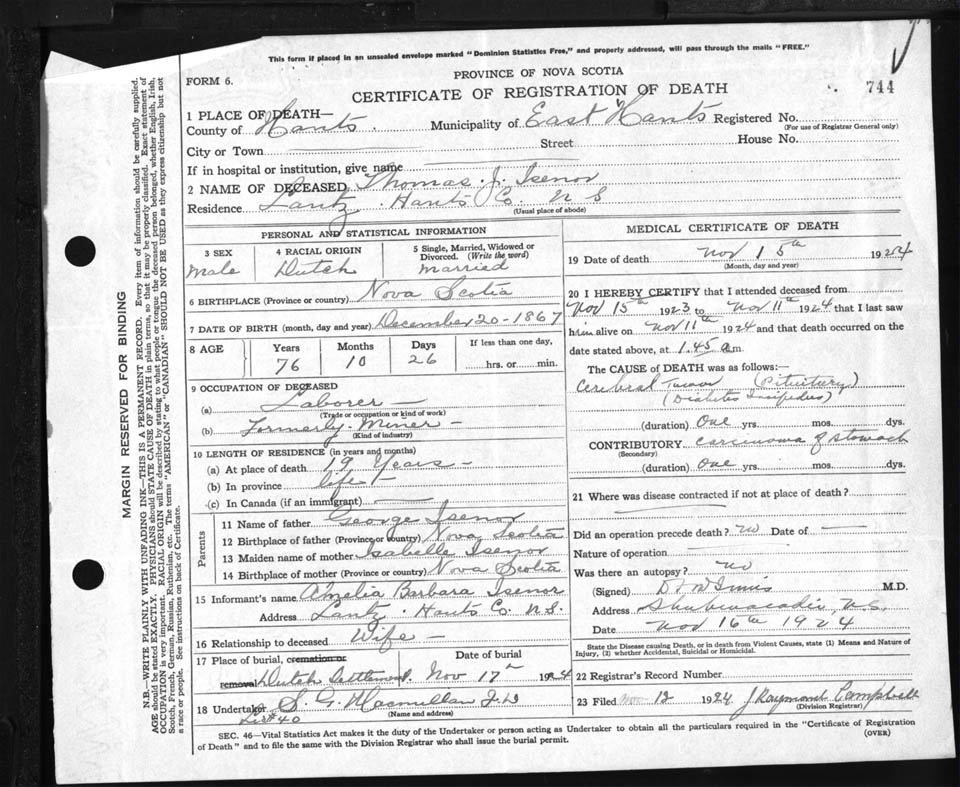 This form if placed in an unsealed envelope marked "Dominion Statistics Free," and properly addressed, will pass through the mails "FREE."
FORM 6.
PROVINCE OF NOVA SCOTIA
CERTIFICATE OF REGISTRATION OF DEATH
744
1 PLACE OF DEATH—
County of Hants. Municipality of East Hants Registered No.
(For use of Registrar General only)
City or Town Street House No.
If in hospital or institution, give name
2 NAME OF DECEASED Thomas J. Isenor
Residence Lantz Hants Co. N S
(Usual place of abode)
PERSONAL AND STATISTICAL INFORMATION
3 SEX 4 RACIAL ORIGIN 5 Single, Married, Widowed or Divorced. (Write the word)
Male Dutch Married
6 BIRTHPLACE (Province or country) Nova Scotia
7 DATE OF BIRTH (month, day and year) December 20-1867
8 AGE Years Months Days If less than one day,
76 10 26 hrs. or min.
9 OCCUPATION OF DECEASED
(a) Laborer
(Trade or occupation or kind of work)
(b) Formerly Miner
(Kind of industry)
10 LENGTH OF RESIDENCE (in years and months)
(a) At place of death 19 Years
(b) In province life
(c) In Canada (if an immigrant)
Parents
11 Name of father George Isenor
12 Birthplace of father (Province or country) Nova Scotia
13 Maiden name of mother Isabelle Isenor
14 Birthplace of mother (Province or country) Nova Scotia
15 Informant's name Amelia Barbara Isenor
Address Lantz Hants Co. N.S.
16 Relationship to deceased Wife
17 Place of burial, cremation or removal Date of burial
Dutch Settlement. Nov 17th 1924
18 Undertaker S. G. Macmillan
(Name and address)
MEDICAL CERTIFICATE OF DEATH
19 Date of death Nov 15th 1924
(Month, day and year)
20 I HEREBY CERTIFY that I attended deceased from
Nov 15th 1923 to Nov 11th 1924 that I last saw
him alive on Nov 11th 1924 and that death occurred on the
date stated above, at 1.45 a.m.
The CAUSE of DEATH was as follows:
Cerebral Tumor (Pituitary)
(Diabetes Insipidus)
(duration) One yrs. mos. dys.
CONTRIBUTORY carcinoma of stomach
(Secondary)
(duration) One yrs. mos. dys.
21 Where was disease contracted if not at place of death?
Did an operation precede death? no Date of
Nature of operation
Was there an autopsy? no
(Signed) M.D.
Address Shubenacadie, N.S.
Date Nov 16th 1924
State the Disease causing Death, or in death from Violent Causes, state (1) Means and Nature of Injury, (2) whether Accidental, Suicidal or Homicidal.
22 Registrar's Record Number
23 Filed Nov. 12 1924 J Raymond Campbell
(Division Registrar)
SEC. 46—Vital Statistics Act makes it duty of the Undertaker or person acting as Undertaker to obtain all the particulars required in the "Certificate of Registration
of Death" and to file the same with the Division Registrar who shall issue the burial permit.
(OVER)
MARGIN RESERVED FOR BINDING
N.B.—WRITE PLAINLY WITH UNFADING INK—THIS IS A PERMANENT RECORD. Every item of information should be carefully supplied.
AGE should be stated EXACTLY. PHYSICIANS should STATE CAUSE OF DEATH in plain terms, so that it may be properly classified. Exact statement of
OCCUPATION is very important. RACIAL ORIGIN will be described by stating to what people or tongue the deceased person belonged, whether English, Irish,
Scotch, French, German, Russian, Ruthenian, etc. The terms "AMERICAN" or "CANADIAN" SHOULD NOT BE USED as they express citizenship but not
a race or people. See instructions on back of Certificate.